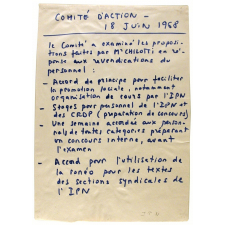 COMITÉ D'ACTION –
18 JUIN 1968
le Comité a examiné les proposi-
tions faites par Mr CHILOTTI en ré-
ponse aux revendications du
personnel :
– Accord de principe pour faciliter
la promotion sociale, notamment
organisation de cours par l'IPN
– Stages pour personnel de l'IPN et
des CRDP (préparation de concours)
Une semaine accordée aux person-
nels de toutes catégories préparant
un concours interne, avant
l'examen
– Accord pour l'utilisation de
la ronéo pour les textes
des sections syndicales de
l'IPN